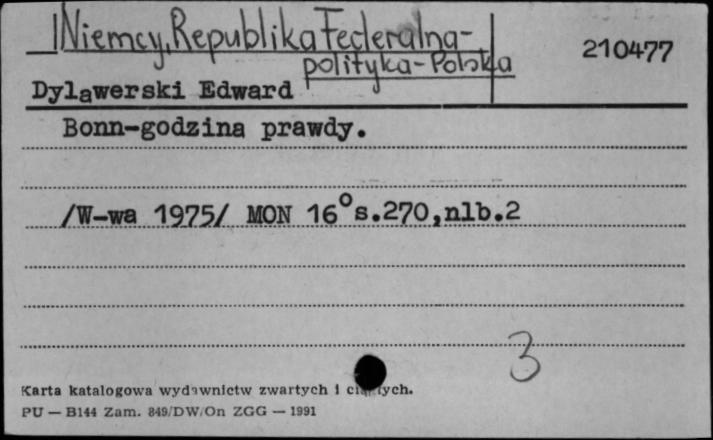 Niemcy, Republika Federalna-
polityka-Polska
210477
Dylawerski Edward
Bonn-godzina prawdy.
/W-wa 1975/ MON 16° s.270,nlb.2
3
Karta katalogowa wydawnictw zwartych i ciągłych.
PU — B144 Zam. 849/DW/On ZGG — 1991